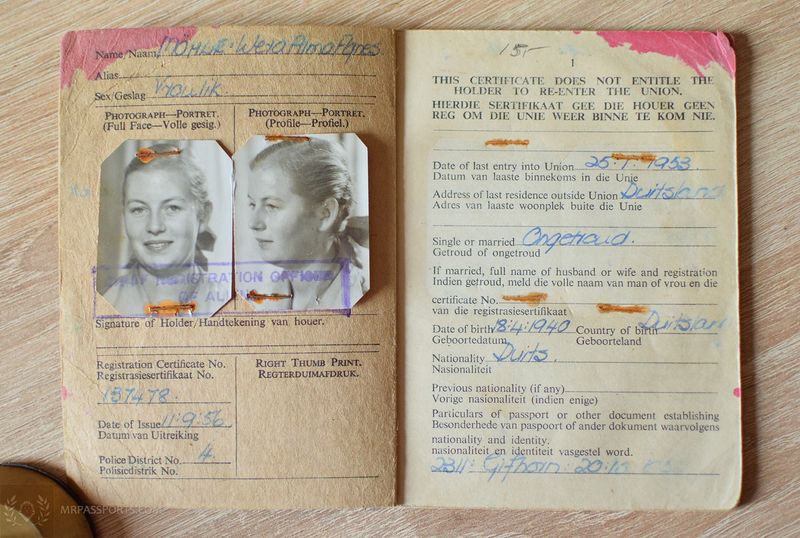 Name/Naam MÖHLE: Wera Alma Agnes
Alias
Sex/Geslag Vroulik.
PHOTOGRAPH—PORTRET.
(Full Face—Volle gesig.)
PHOTOGRAPH—PORTRET.
(Profile—Profiel.)
REGISTRATION OFFICER
OF ALIENS
Signature of Holder/Handtekening van houer.
Registration Certificate No.
Registrasiesertifikaat No.
137478.
Date of Issue 11:9:56
Datum van Uitreiking
Police District No. 4.
Polisiedistrik No.
RIGHT THUMB PRINT.
REGTERDUIMAFDRUK.
MRPASSPORTS.COM
15/-
1
THIS CERTIFICATE DOES NOT ENTITLE THE
HOLDER TO RE-ENTER THE UNION.
HIERDIE SERTIFIKAAT GEE DIE HOUER GEEN
REG OM DIE UNIE WEER BINNE TE KOM NIE.
Date of last entry into Union 25:1:1953.
Datum van laaste binnekoms in die Unie
Address of last residence outside Union Duitsland
Adres van laaste woonplek buite die Unie
Single or married Ongetroud.
Getroud of ongetroud
If married, full name of husband or wife and registration
Indien getroud, meld die volle naam van man of vrou en die
certificate No.
van die registrasiesertifikaat
Date of birth 18:4:1940 Country of birth Duitsland
Geboortedatum Geboorteland
Nationality Duits.
Nasionaliteit
Previous nationality (if any)
Vorige nasionaliteit (indien enige)
Particulars of passport or other document establishing
Besonderhede van paspoort of ander dokument waarvolgens
nationality and identity.
nasionaliteit en identiteit vasgestel word.
2311: Gifhorn: 20:10